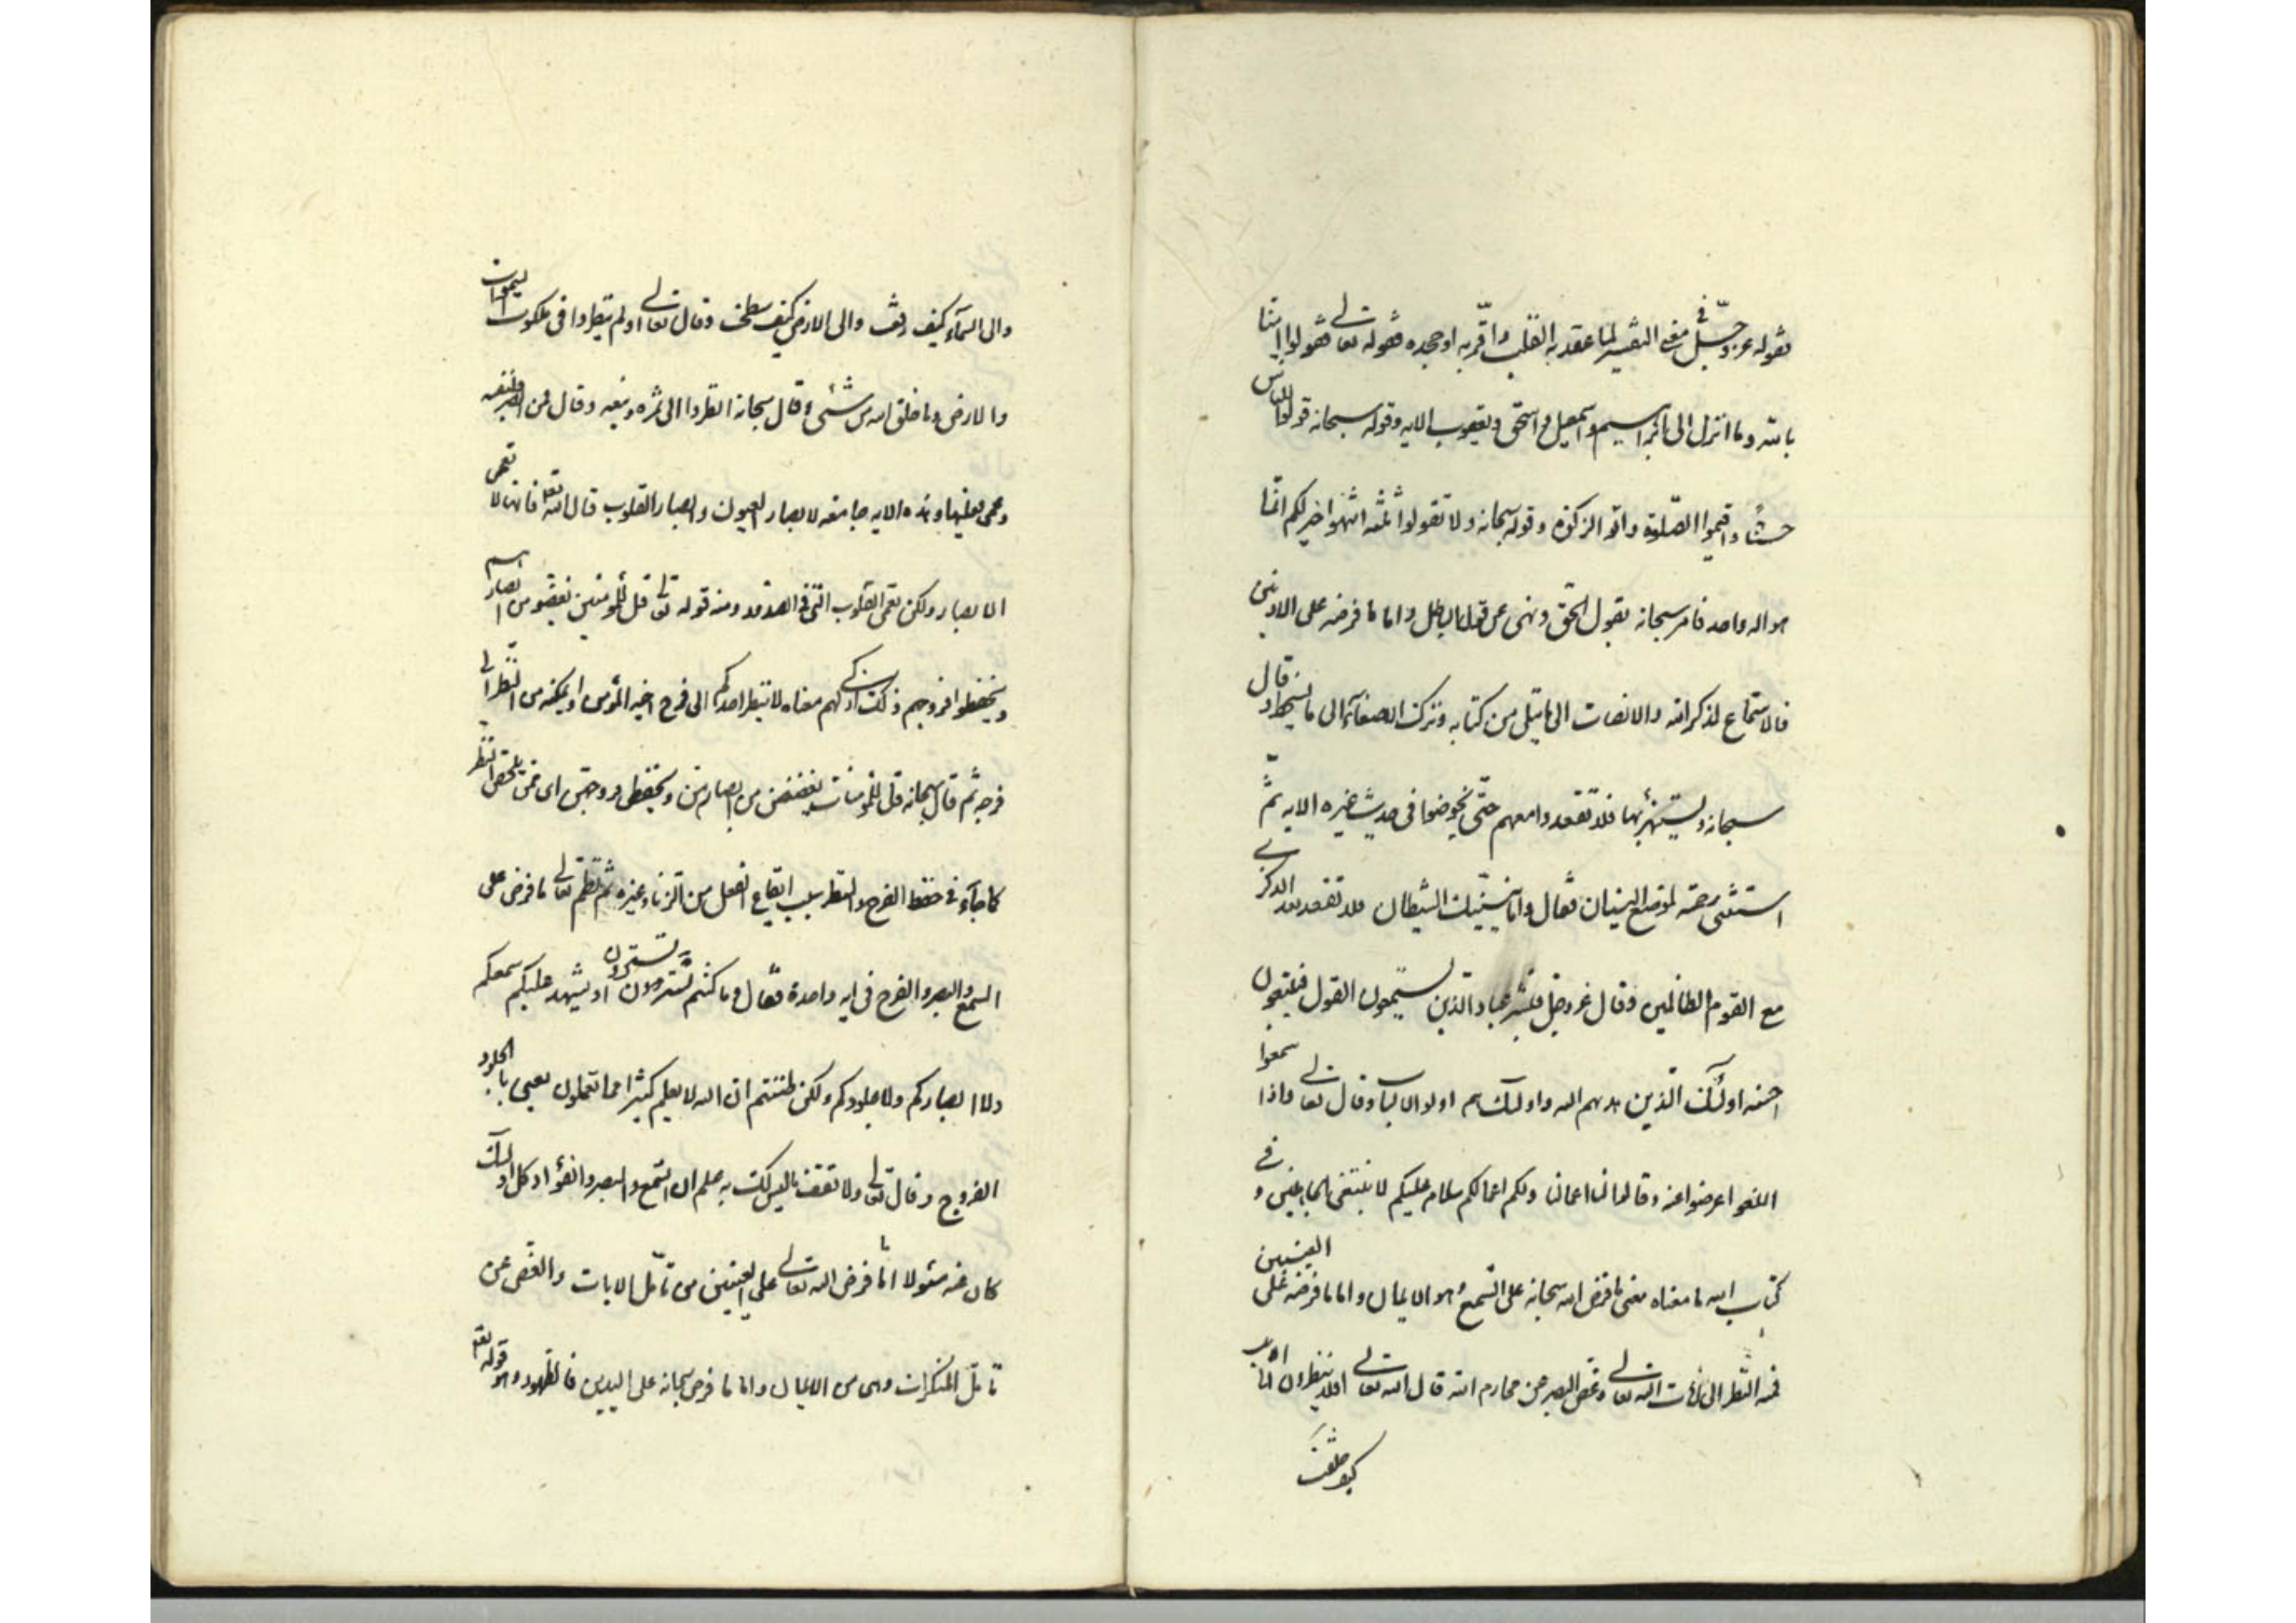 فقوله عز وجل في معنى التفسير لما عقد به القلب واقر به او جحده فقوله تعالى قولوا امنا
بالله وما انزل الى ابراهيم واسمعيل واسحق ويعقوب الايه وقوله سبحانه قولوا للناس
حسنا واقيموا الصلوة واتو الزكوة وقوله سبحانه ولا تقولوا ثلثه انتهوا خير لكم انما
هو اله واحد فامر سبحانه بقول الحق ونهى عن قول الباطل واما ما فرضه على الاذنين
فالاستماع لذكر الله والانصات الى ما يتلى من كتابه وترك الاصغاء الى ما يسخطه قال
سبحانه ويستهزئ بها فلا تقعدوا معهم حتى يخوضوا في حديث غيره الايه ثم
استثنى برحمته لموضع النسيان فقال واما ينسينك الشيطان فلا تقعد بعد الذكرى
مع القوم الظالمين وقال عز وجل فبشر عباد الذين يستمعون القول فيتبعون
احسنه اولئك الذين هديهم الله واولئك هم اولو الالباب وقال تعالى واذا سمعوا
اللغو اعرضوا عنه وقالوا لنا اعمالنا ولكم اعمالكم سلام عليكم لا نبتغي الجاهلين و في
كتاب الله ما معناه معنى ما فرض الله سبحانه على السمع وهو الايمان واما ما فرضه على العينين
فمنه النظر الى ايات الله تعالى وغض البصر عن محارم الله قال الله تعالى افلا ينظرون الى الابل
كيف خلقت
والى السمآء كيف رفعت والى الارض كيف سطحت وقال تعالى اولم ينظروا في ملكوت السموات
والارض وما خلق الله من شئ وقال سبحانه انظروا الى ثمره وينعه وقال فمن ابصر فلنفسه
ومن عمى فعليها وهذه الايه جامعه لابصار العيون وابصار القلوب قال الله تعالى فانها لا تعمى
الابصار ولكن تعمى القلوب التي في الصدور ومنه قوله تعالى قل للمؤمنين يغضو من ابصارهم
ويحفظوا فروجهم ذلك ازكى لهم معناه لا ينظر احدكم الى فرج اخيه المؤمن او يمكنه من النظر الى
فرجه ثم قال سبحانه قل للمؤمنات يغضضن من ابصارهن ويحفظن فروجهن اى ممن يلحقهن النظر
كما جآء في حفظ الفرج والنظر سبب ايقاع الفعل من الزنا وغيره ثم نظم تعالى ما فرض على
السمع والبصر والفرج في ايه واحدة فقال وما كنتم تستترون ان يشهد عليكم سمعكم
ولا ابصاركم ولا جلودكم ولكن ظننتم ان الله لا يعلم كثيرا مما تعملون يعني بالجلود
الفروج وقال تعالى ولا تقف ما ليس لك به علم ان السمع والبصر والفؤاد كل اولئك
كان عنه مسئولا انما فرض الله تعالى على العينين من تامل الايات والغض عن
تامل المنكرات وهي من الايمان واما ما فرض سبحانه على اليدين فالطهور وهو قوله تعالى